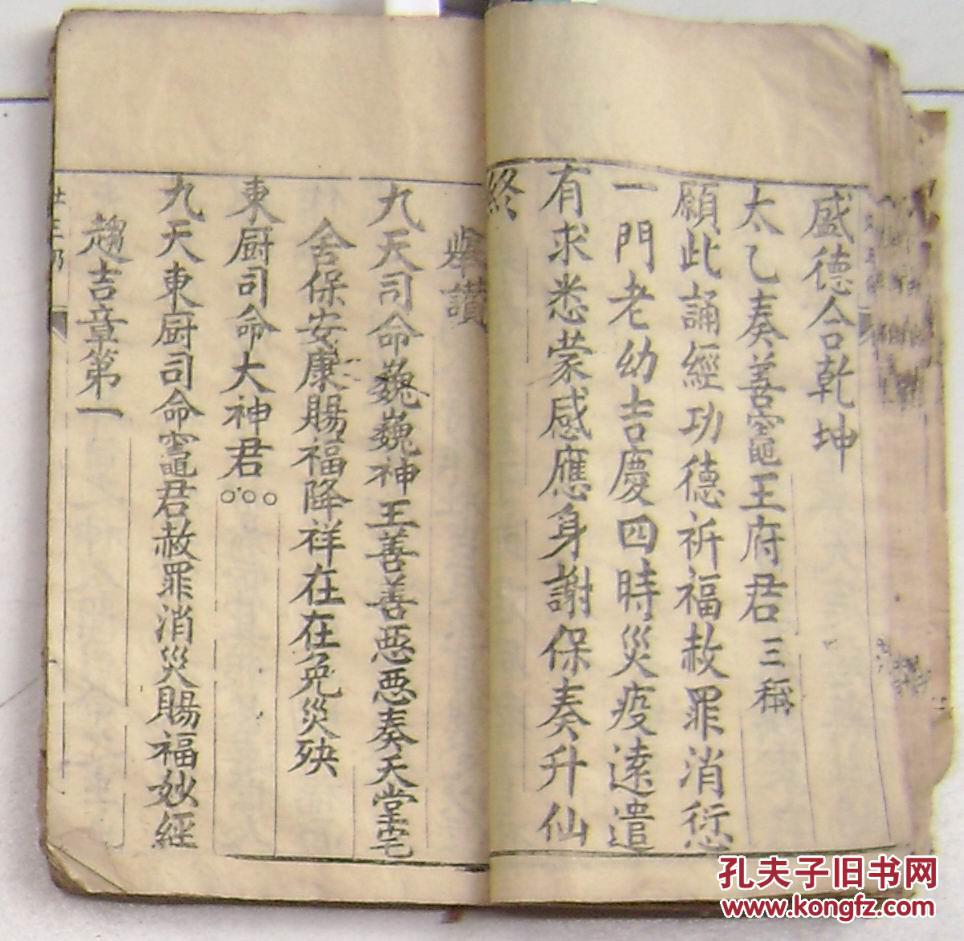 盛德合乾坤
太乙奏善竈王府君三稱
願此誦經功德祈福赦罪消愆
一門老幼吉慶四時災疫遠遣
有求悉蒙感應身謝保奏升仙
終
舉讃
九天司命巍巍神王善善惡惡奏天堂宅
舍保安康賜福降祥在在免災殃
東厨司命大神君
九天東厨司命竈君赦罪消災賜福妙經
趨吉章第一
孔夫子旧书网
www.kongfz.com